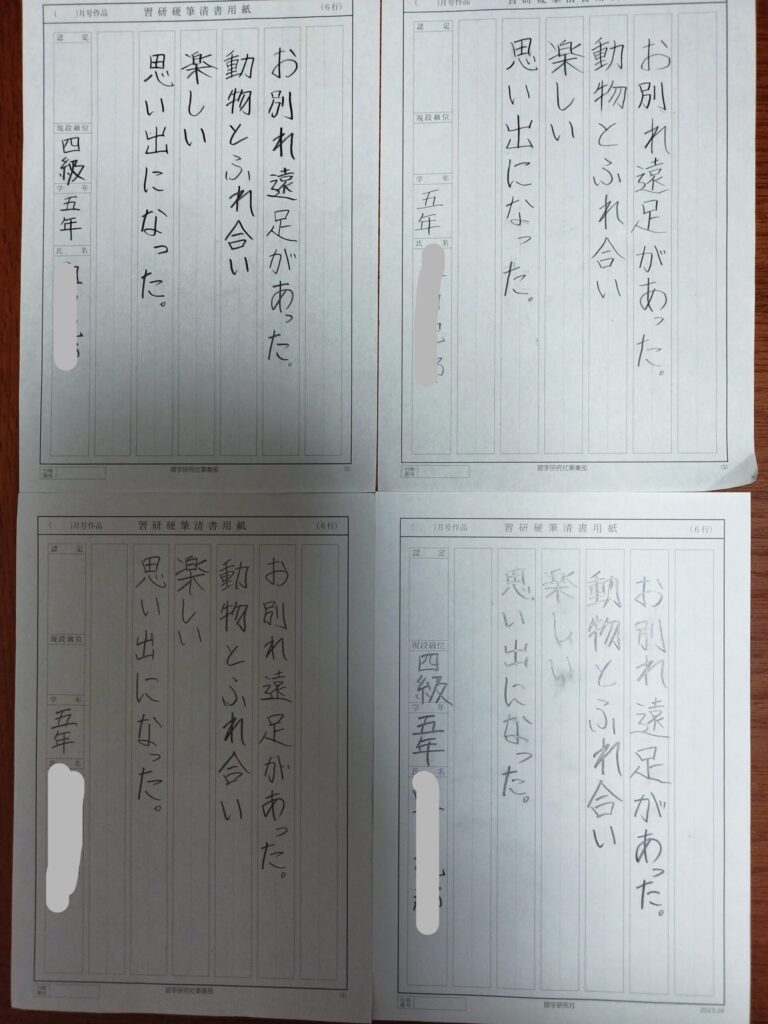 (　)月号作品　習研硬筆清書用紙　(6行)
お別れ遠足があった。
動物とふれ合い
楽しい
思い出になった。
認定
現段級位
四級
学年
五年
氏名
習字研究社事業部
(　)月号作品　習研硬筆清書用紙　(6行)
お別れ遠足があった。
動物とふれ合い
楽しい
思い出になった。
認定
現段級位
学年
五年
氏名
習字研究社事業部
(　)月号作品　習研硬筆清書用紙　(6行)
お別れ遠足があった。
動物とふれ合い
楽しい
思い出になった。
認定
現段級位
学年
五年
習字研究社事業部
(　)月号作品　習研硬筆清書用紙　(6行)
お別れ遠足があった。
動物とふれ合い
楽しい
思い出になった。
認定
現段級位
四級
学年
五年
氏名
習字研究社